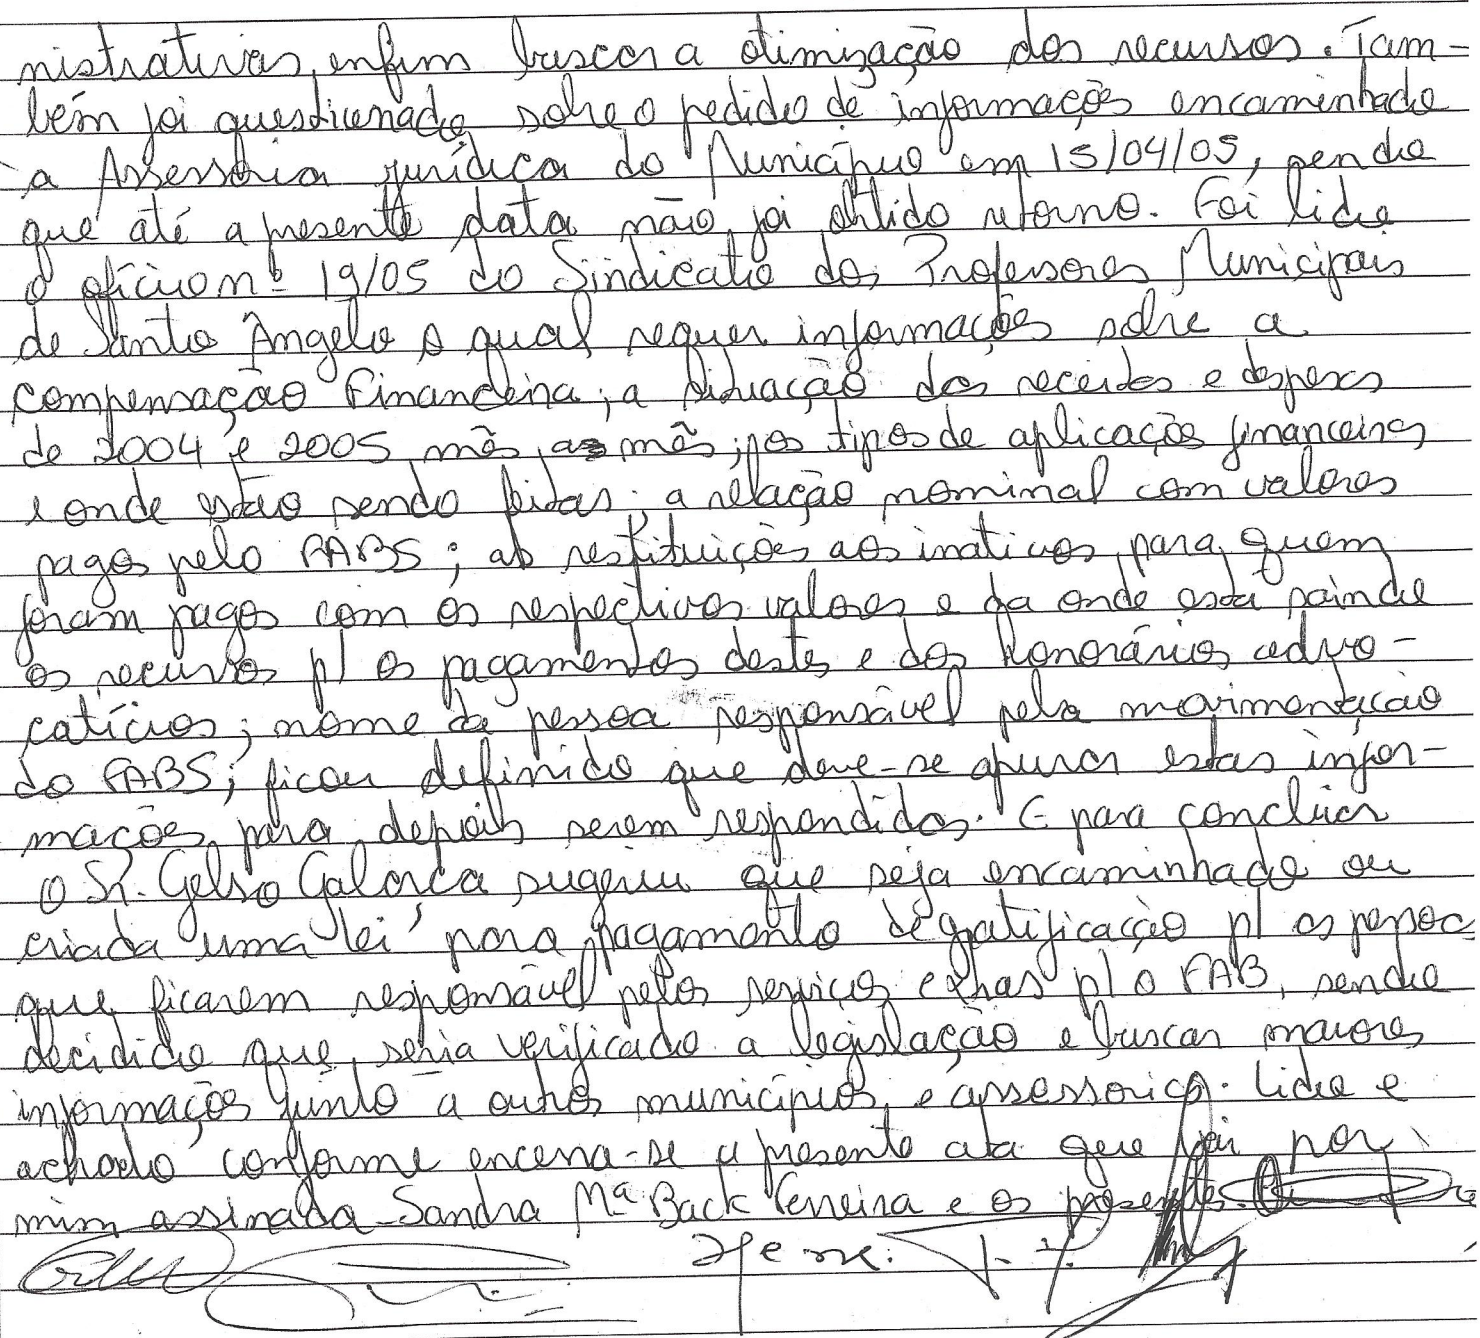 nistrativas, enfim buscar a otimização dos recursos. Tam-
bém foi questionado sobre o pedido de informações encaminhado
a Assessoria jurídica do Município em 15/04/05, sendo
que até a presente data não foi obtido retorno. Foi lido
o ofício nº 19/05 do Sindicato dos Professores Municipais
de Santo Ângelo o qual requer informações sobre a
compensação Financeira; a situação das receitas e despesas
de 2004 e 2005 mês as mês; os tipos de aplicações financeiras
e onde estão sendo feitas; a relação nominal com valores
pagos pelo FABS; as restituições aos inativos, para quem
foram pagos com os respectivos valores e da onde está saindo
os recursos p/ os pagamentos destes e dos honorários advo-
catícios; nome da pessoa responsável pela movimentação
do FABS; ficou definido que deve-se apurar estas infor-
mações para depois serem respondidos. E para concluir
o Sr. Gelso Galorça sugeriu que seja encaminhado ou
criada uma lei para pagamento de gratificação p/ as pessoas
que ficarem responsável pelos serviços extras p/ o FAB, sendo
decidido que seria verificado a legislação e buscar maiores
informações junto a outros municípios, e assessorias. Lido e
achado conforme encerra-se a presente ata que foi por
mim assinada Sandra Mª Back Ferreira e os presentes.